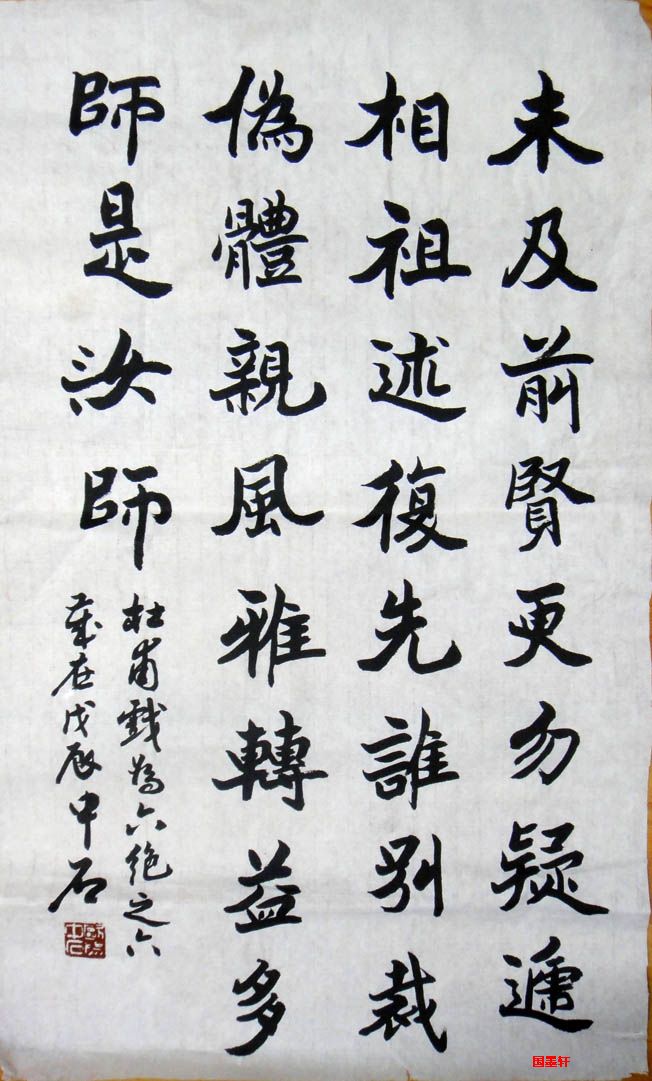 未及前賢更勿疑遞
相祖述復先誰別裁
偽體親風雅轉益多
師是汝師
杜甫戲為六絶之六
歲在戊辰中石
國墨轩